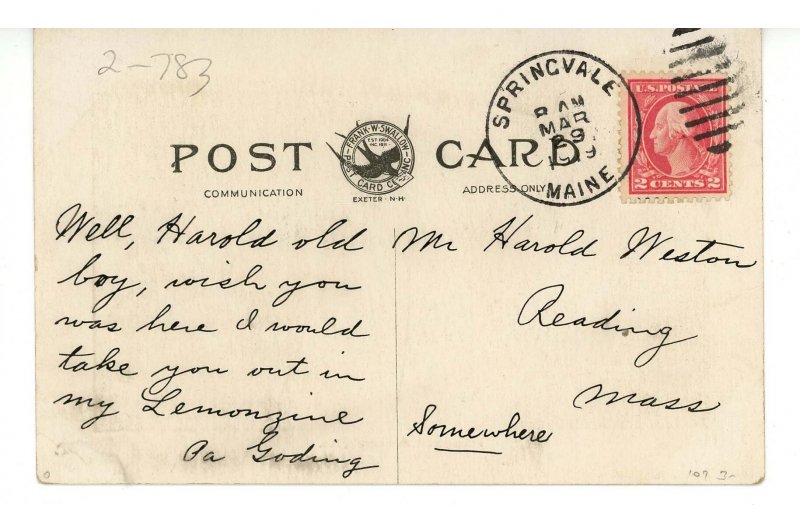 2-783
SPRINGVALE
8 AM
MAR
29
1919
MAINE
U.S. POSTAGE
2 CENTS 2
POST CARD
FRANK·W·SWALLOW
EST 1904
INC 1911
POST CARD CO. INC
EXETER·N·H·
COMMUNICATION
ADDRESS ONLY
Well, Harold old
boy, wish you
was here I would
take you out in
my Lemonzine
Pa Goding
Mr Harold Weston
Reading
Mass
Somewhere
'07 3-